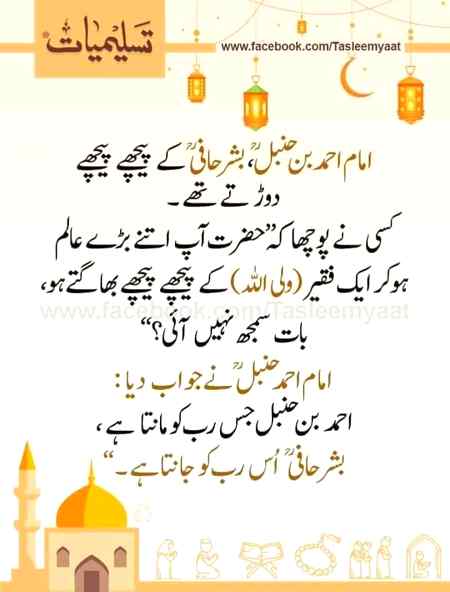 تسلیمیات
www.facebook.com/Tasleemyaat
امام احمد بن حنبلؒ، بشر حافیؒ کے پیچھے پیچھے
دوڑتے تھے۔
کسی نے پوچھا کہ ”حضرت آپ اتنے بڑے عالم
ہوکر ایک فقیر (ولی اللہ) کے پیچھے پیچھے بھاگتے ہو،
www.facebook.com/Tasleemyaat
بات سمجھ نہیں آئی؟“
امام احمد حنبلؒ نے جواب دیا:
احمد بن حنبل جس رب کو مانتا ہے،
بشر حافیؒ اُس رب کو جانتا ہے۔“